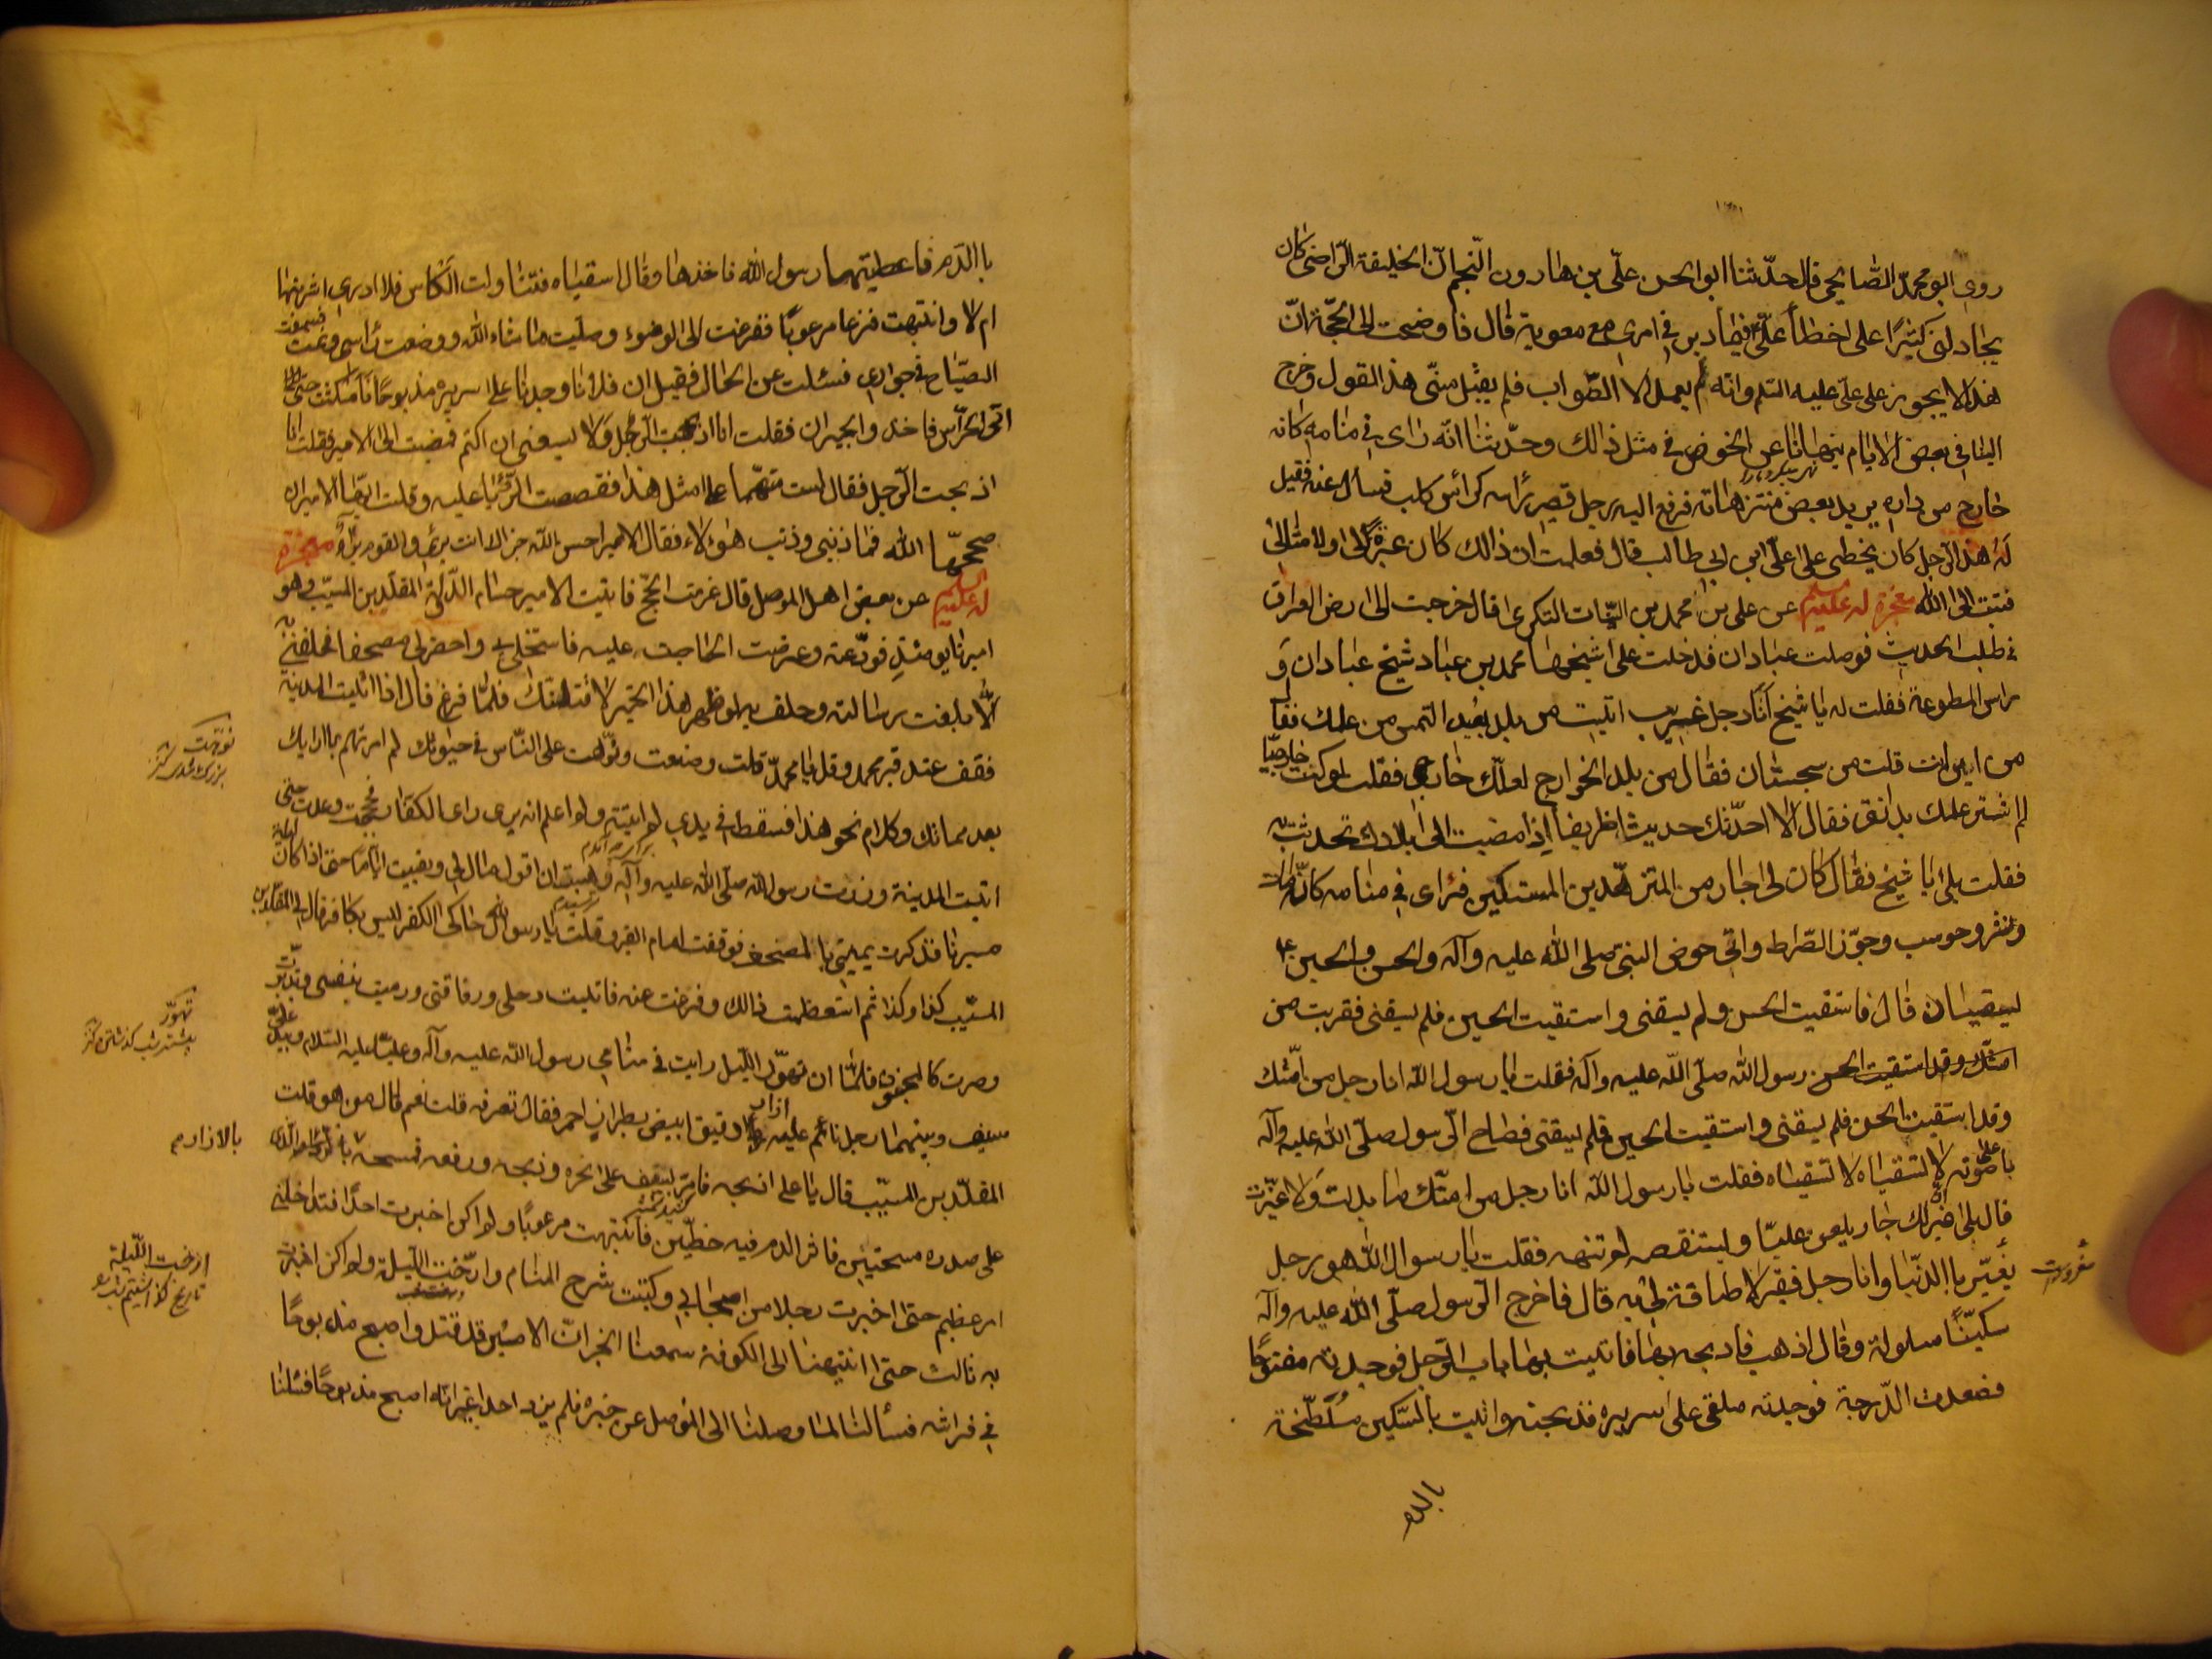 روى ابو محمد الصالحى قال حدّثنا ابو الحسن علّى بن هارون النّجم انّ الخليفة الرّاضى كان
يجادلنى كثيرًا على اخطأ علّى فيما دبر فى امره مع معوية قال فاوضحت له الحجّة انّ
هذا لا يجوز على علّى عليه السّلم وانّه لم يعمل الا الصّواب فلم يقبل منّى هذا القول وخرج
الينا فى بعض الايّام ينهانا عن الخوض فى مثل ذالك وحدّثنا انّه راى فى منامه كانه
خارج من داره يريد بعض متنزهاته فرفع اليه رجل قصير رأسه كرأس كلب فسأل عنه فقيل
له هذا الرجل كان يخطى على علّى ابن ابى طالب قال فعلمت ان ذالك كان عبرةً لى ولامثالى
فتبت الى الله معجزة له عليه السلم عن على بن محمد بن الزّيات التكرى قال خرجت الى ارض العراق
فى طلب الحديث فوصلت عبادان فدخلت على شيخها محمد بن عباد شيخ عبادان و
راس المطوعة فقلت له يا شيخ انا رجل غريب اتيت من بلد بعيد التمس من علمك فقال
من اين انت قلت من سجستان فقال من بلد الخوارج لعلّك خارجى فقلت لو كنت خارجيًّا
لم اشتر علمك بدانق فقال الا احدّثك حديثا ظريفا اذا مضيت الى بلادك تحدث به
فقلت بلى يا شيخ فقال كان لى جار من المتزهّدين المستكين فراى فى منامه كانّه مات
ونشر وحوسب وجوّز الصّراط واتى حوض النبىّ صلى الله عليه وآله والحسن والحسين ع
يسقيان قال فاستقيت الحسن ولم يسقنى واستقيت الحسين فلم يسقنى فقربت من
رسول الله صلّى الله عليه وآله فقلت يا رسول الله انا رجل من امّتك
وقد استقيت الحسن فلم يسقنى واستقيت الحسين فلم يسقنى فصاح الرّسول صلّى الله عليه وآله
باعلى صوته لا تسقياه لا تسقياه فقلت يا رسول الله انا رجل من امّتك ما بدلت ولا غيّرت
قال بلى لك جار يلعن عليّا ويستنقصه لم تنهه فقلت يا رسول الله هو رجل
يغتّر بالدنّيا وانا رجل فقير لا طاقة لى به قال فاخرج الرّسول صلّى الله عليه وآله
سكيّنًا مسلولة وقال اذهب فاذبحه بها فاتيت بها باب الرّجل فوجدته مفتوحًا
فصعدت الدّرجة فوجدته ملقى على سريره فذبحته واتيت بالسّكين مُلطّخة
بالدم
بالدّم فاعطيتها رسول الله فاخذها وقال اسقياه فتناولت الكاس فلا ادرى اشربتها
ام لا وانتبهت فزعا مرعوبًا ففزعت الى الوضوء وصلّيت ما شاء الله ووضعت رأسى ونمت فسمعت
الصّياح فى جوارى فسئلت عن الحال فقيل ان فلانا وجدنا على سريره مذبوحًا فما مكثت حتّى
اتى الحرّاس فاخذوا الجيران فقلت انا ذبحت الرّجل ولا يسعنى ان اكتم فمضيت الى الامير فقلت انا
ذبحت الرّجل فقال لست متهّما على مثل هذا فقصصت الرّؤيا عليه وقلت ايّها الامير ان
صححها الله فما ذنبى وذنب هؤلاء فقال الامير احسن الله جزاك انت برىّ والقوم برآء معجزة
له عليه السلم عن بعض اهل الموصل قال عزمت الحّج فاتيت الامير حسام الدّولة المقلّد بن المسيّب وهو
اميرنا يومئذٍ فودّعته وعرضت الحاجة عليه فاستخلى بى واحضر لى مصحفا فحلفنى به
الّا بلغت رسالته وحلف به لو ظهر هذا الخبر لاقتلنّك فلمّا فرغ قال اذا اتيت المدينة
فقف عند قبر محمد وقل يا محمدّ قلت وصنعت وموّهت على النّاس فى حيٰوتك لم امرتهم بزيارتك
بعد مماتك وكلام نحو هذا فسقط فى يدى لم اتيته ولو اعلم انه يرى راى الكفّار فحججت وعدت حتى
اتيت المدينة وزرت رسول الله صلّى الله عليه وآله وهبت ان اقول ما قال لى وبقيت ايّامًا حتى اذا كان ليلة
مسيرنا فذكرت يمينى بالمصحف فوقفت امام القبر وقلت يا رسول الله حاكى الكفر ليس بكافر قال لى المقلّد بن
المسيّب كذا وكذا ثم استعظمت ذالك وفزعت عنه فاتيت رحلى ورفاقتى ورميت بنفسى وتدثّرت
وصرت كالمجنون فلمّا ان تهوّر الليل رايت فى منامى رسول الله عليه وآله وعليّا عليه السّلام وبيد علىّ
سيف وبينهما رجل نائم عليه ازار دقيق ابيض بطراز احمر فقال تعرفه قلت نعم قال من هو قلت
المقلّد بن المسيّب قال يا على اذبحه فامرّ السّيف على نحره وذبحه ورفعه فمسحه بالازار الّذى
على صدره مسحتين فاثر الدم فيه خطّين فانتبهت مرعوبًا ولم اكن اخبرت احدًا فتداخلنى
امر عظيم حتى اخبرت رجلا من اصحابى وكتبت شرح المنام وارّخت اللّيلة ولم اكن اخبرت
به ثالث حتى انتهينا الى الكوفة سمعنا الخبر انّ الامير قد قتل واصبح مذبوحًا
فى فراشه فسألنا لما وصلنا الى الموصل عن خبره فلم يزد احد غير انّه اصبح مذبوحًا فسئلنا
موّهت
تهوّر
بالازارم
ارخت اللّيلة